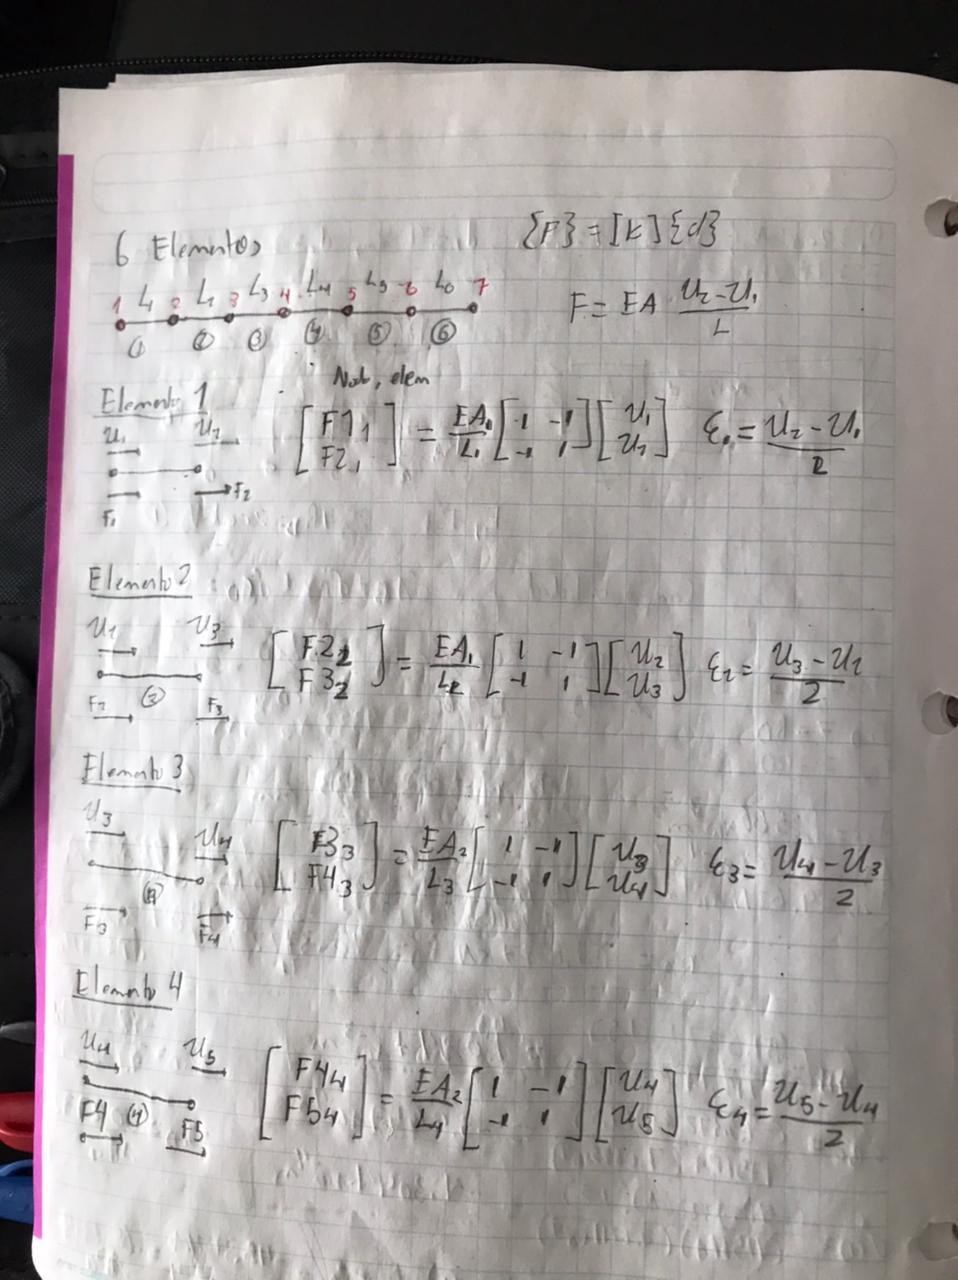 6 Elementos
{F} = [K]{d}
1 L1 2 L2 3 L3 4 L4 5 L5 6 L6 7
① ② ③ ④ ⑤ ⑥
F = EA U2-U1 / L
Nodo, elem
Elemento 1
U1 U2
[F1 1 F2 1] = EA1/L1 [1 -1 -1 1] [U1 U2] ε1 = U2 - U1 / 2
F1 F2
Elemento 2
U2 U3
[F2 2 F3 2] = EA1/L2 [1 -1 -1 1] [U2 U3] ε2 = U3 - U2 / 2
F2 ② F3
Elemento 3
U3 U4
[F3 3 F4 3] = EA2/L3 [1 -1 -1 1] [U3 U4] ε3 = U4 - U3 / 2
F3 F4
Elemento 4
U4 U5
[F4 4 F5 4] = EA2/L4 [1 -1 -1 1] [U4 U5] ε4 = U5 - U4 / 2
F4 ④ F5